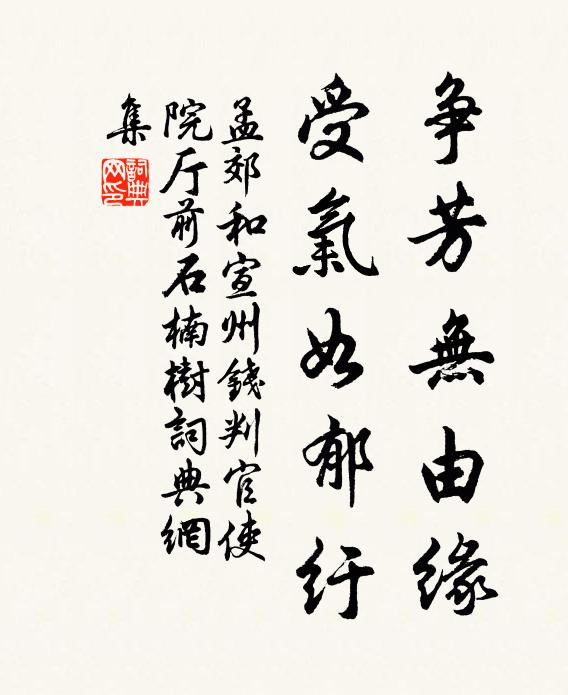 争芳無由緣
受氣如郁紆
孟郊和宣州錢判官使
院厅前石楠樹詞典網
集
詞典
网印